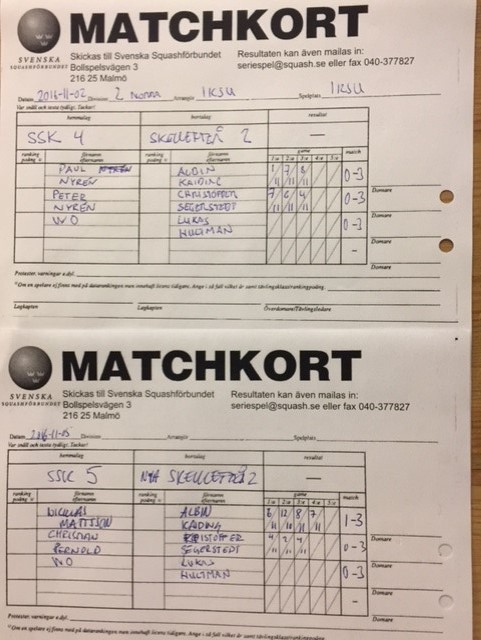 MATCHKORT
SVENSKA
SQUASHFÖRBUNDET
Skickas till Svenska Squashförbundet
Bollspelsvägen 3
216 25 Malmö
Resultaten kan även mailas in:
seriespel@squash.se eller fax 040-377827
Datum 2016-11-02 Division 2 NORRA Arrangör IKSU Spelplats IKSU
Var snäll och texta tydligt. Tackar!
hemmalag bortalag resultat
SSK 4 SKELLEFTEÅ 2 —
ranking poäng förnamn efternamn ranking poäng förnamn efternamn game match
1:a 2:a 3:e 4:e 5:e
PAUL ALBIN 1 7 8
NYREN KAIDING 11 11 11 0-3
Domare
PETER CHRISTOFFER 7 6 4
NYREN SEGERSTEDT 11 11 11 0-3
Domare
WO LUKAS
HULTMAN 0-3
Domare
-
Domare
Protester, varningar e.dyl.
Lagkapten Lagkapten Överdomare/Tävlingsledare
MATCHKORT
SVENSKA
SQUASHFÖRBUNDET
Skickas till Svenska Squashförbundet
Bollspelsvägen 3
216 25 Malmö
Resultaten kan även mailas in:
seriespel@squash.se eller fax 040-377827
Datum Division Arrangör Spelplats
Var snäll och texta tydligt. Tackar!
hemmalag bortalag resultat
SSK 5 SKELLEFTEÅ 2 —
ranking poäng förnamn efternamn ranking poäng förnamn efternamn game match
1:a 2:a 3:e 4:e 5:e
NICKLAS ALBIN 6 12 8 7
MATTSSON KAIDING 11 10 11 11 1-3
Domare
CHRISTIAN KRISTOFFER 4 2 4
BERNOLD SEGERSTEDT 11 11 11 0-3
Domare
WO LUKAS
HULTMAN 0-3
Domare
Domare
Protester, varningar e.dyl.